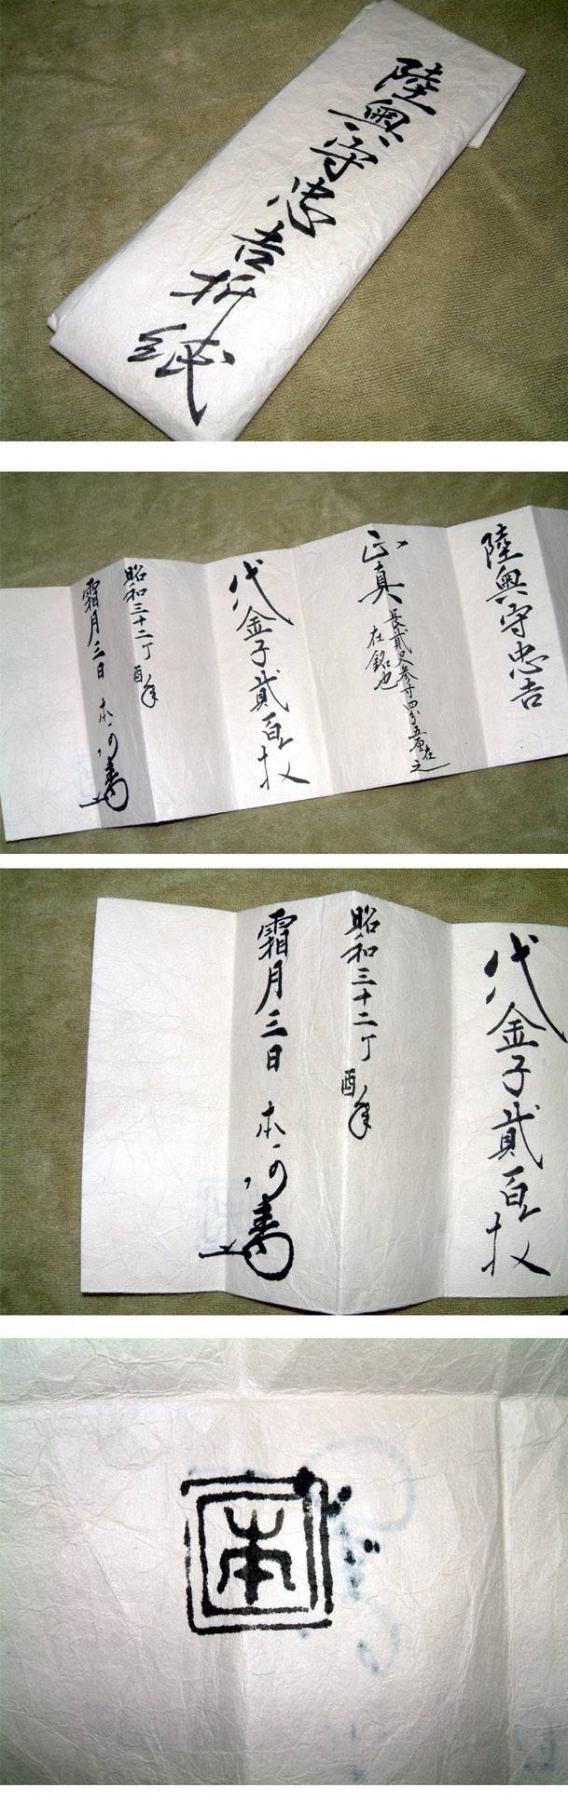 陸奥守忠吉折紙
陸奥守忠吉
正真
長貳尺参寸四分五厘在之
在銘也
代金子貳百枚
昭和三十二丁
酉年
霜月三日 本
代金子貳百枚
昭和三十二丁
酉年
霜月三日 本
本